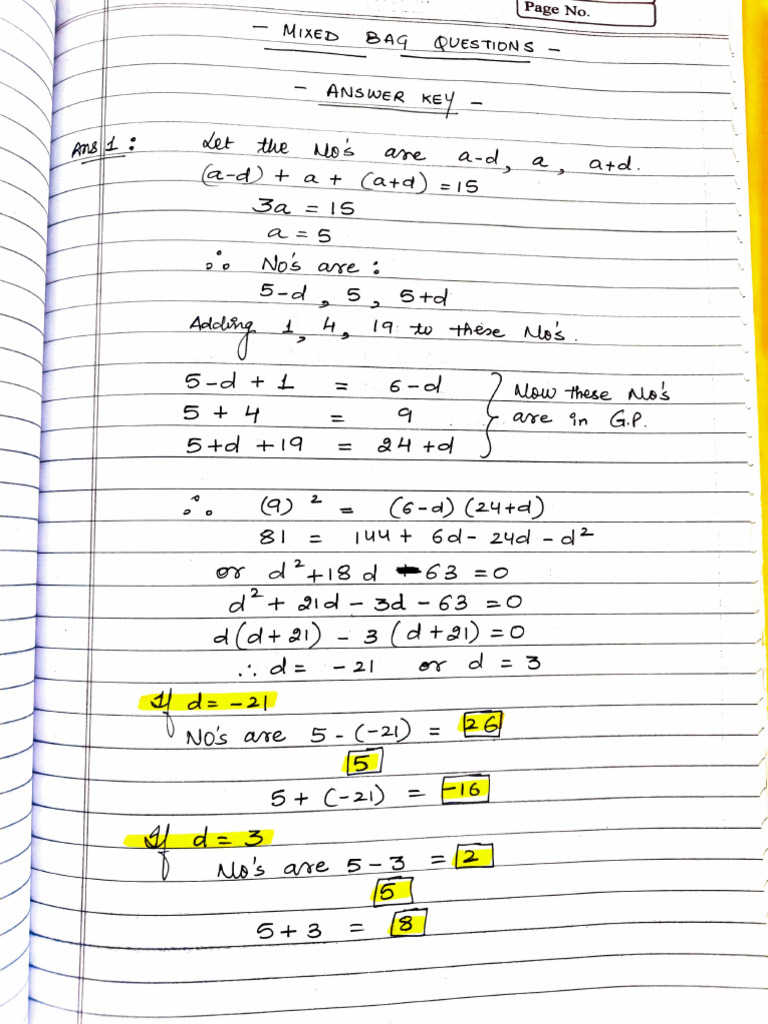 Page No.
- MIXED BAG QUESTIONS -
- ANSWER KEY -
Ans 1 : Let the No's are a-d, a, a+d.
(a-d) + a + (a+d) = 15
3a = 15
a = 5
∴ No's are :
5-d , 5 , 5+d
Adding 1, 4, 19 to these No's.
5-d + 1 = 6-d } Now these No's
5 + 4 = 9 are in G.P.
5+d +19 = 24 +d
∴ (9)² = (6-d) (24+d)
81 = 144 + 6d - 24d - d²
or d² + 18 d - 63 = 0
d² + 21d - 3d - 63 = 0
d(d+21) - 3 (d+21) = 0
∴ d = -21 or d = 3
If d = -21
No's are 5 - (-21) = 26
5
5 + (-21) = -16
If d = 3
No's are 5 - 3 = 2
5
5 + 3 = 8